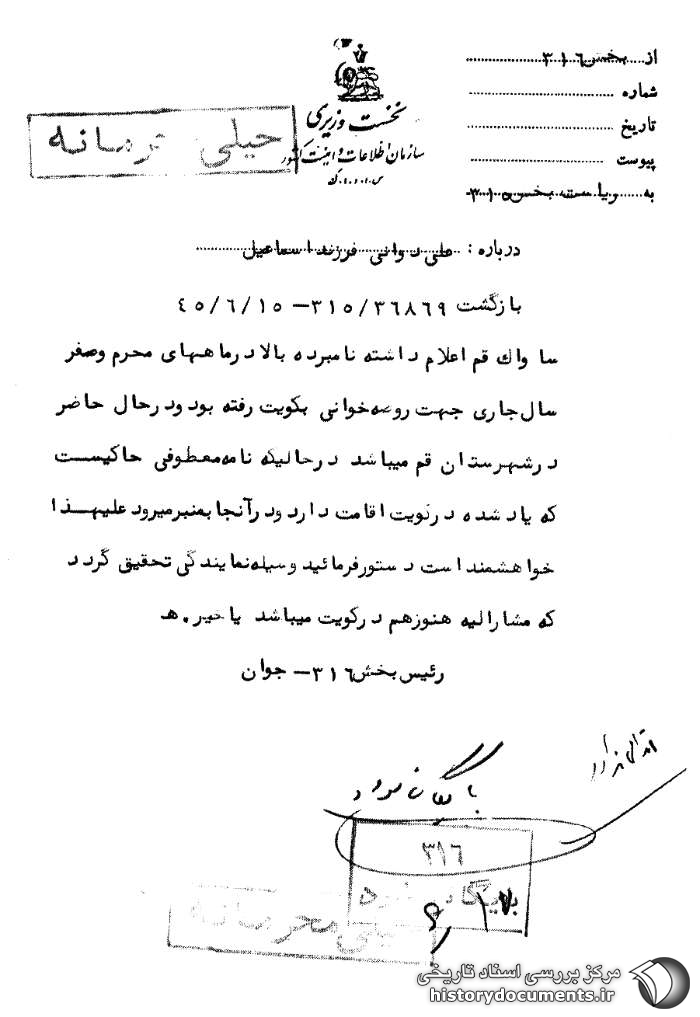 از بخش ٣١٦
شماره
تاریخ
پیوست
به ریاست بخش ٣١٥
نخست وزیری
سازمان اطلاعات و امنیت کشور
س.ا.و.ا.ک
خیلی محرمانه
درباره : علی دوانی فرزند اسماعیل
بازگشت ٣٦٨٦٩/٣١٥ – ٤٥/٦/١٥
ساواك قم اعلام داشته نامبرده بالا درماههای محرم وصفر
سال جاری جهت روضه خوانی بکویت رفته بود ودرحال حاضر
درشهرستان قم میباشد درحالیکه نامه معطوفی حاکیست
که یاد شده درکویت اقامت دارد ودرآنجا بمنبر میرود علیهذا
خواهشمند است دستور فرمائید وسیله نمایندگی تحقیق گردد
که مشارالیه هنوزهم درکویت میباشد یا خیر . هـ
رئیس بخش ٣١٦ – جوان
بایگانی شود
٣١٦
بایگانی شود
٦/١٧
خیلی محرمانه
مرکز بررسی اسناد تاریخی
historydocuments.ir